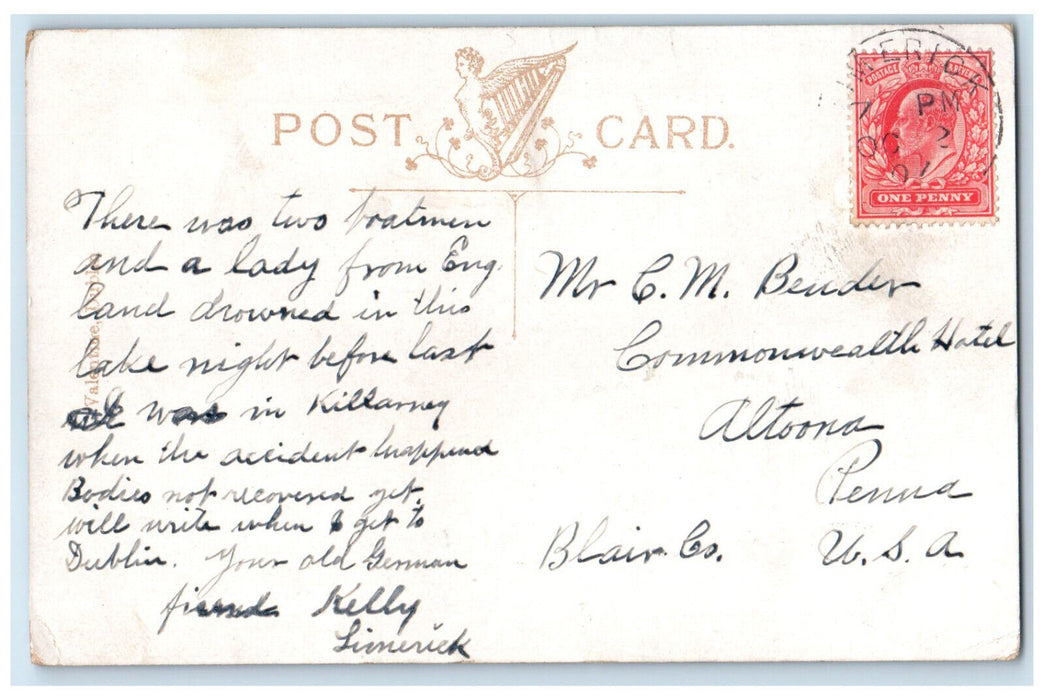 POST CARD.
There was two boatmen
and a lady from Eng
land drowned in this
lake night before last
was in Killarney
when the accident happened
Bodies not recovered yet.
will write when I get to
Dublin. Your old German
friend Kelly
Limerick
Mr C. M. Bender
Commonwealth Hotel
Altoona
Penna
Blair Co. U. S. A
Valentine,
POSTAGE
ONE PENNY
MERICK
7 PM
OC 2
07